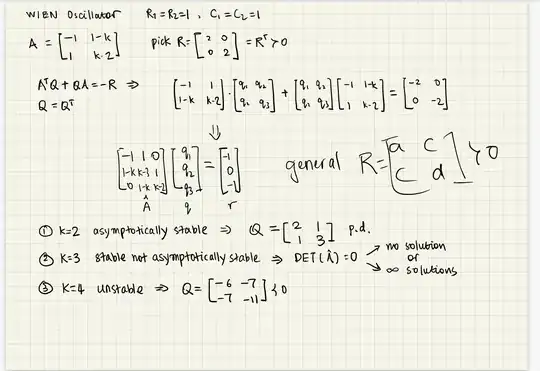 WIEN Oscillator R₁=R₂=1 , C₁=C₂=1
A = [-1 1-k; 1 k-2] pick R = [2 0; 0 2] = Rᵀ > 0
AᵀQ + QA = -R ⇒ [-1 1; 1-k k-2] · [q₁ q₂; q₂ q₃] + [q₁ q₂; q₂ q₃] [-1 1-k; 1 k-2] = [-2 0; 0 -2]
Q = Qᵀ
⇓
[-1 1 0; 1-k k-3 1; 0 1-k k-2] [q₁; q₂; q₃] = [-1; 0; -1] general R = [a c; c d] > 0
Â q r
① k=2 asymptotically stable ⇒ Q = [2 1; 1 3] p.d.
② k=3 stable not asymptotically stable ⇒ DET(Â) = 0 → no solution
or
→ ∞ solutions
③ k=4 unstable ⇒ Q = [-6 -7; -7 -11] < 0